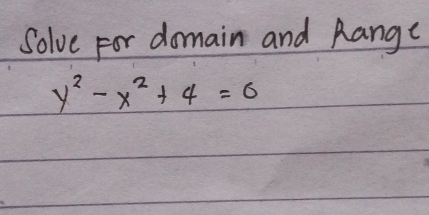 Solve For domain and Range
y² - x² + 4 = 0